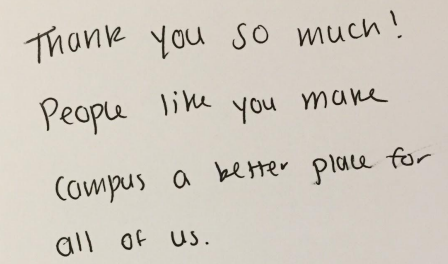 Thank you so much!
People like you make
campus a better place for
all of us.